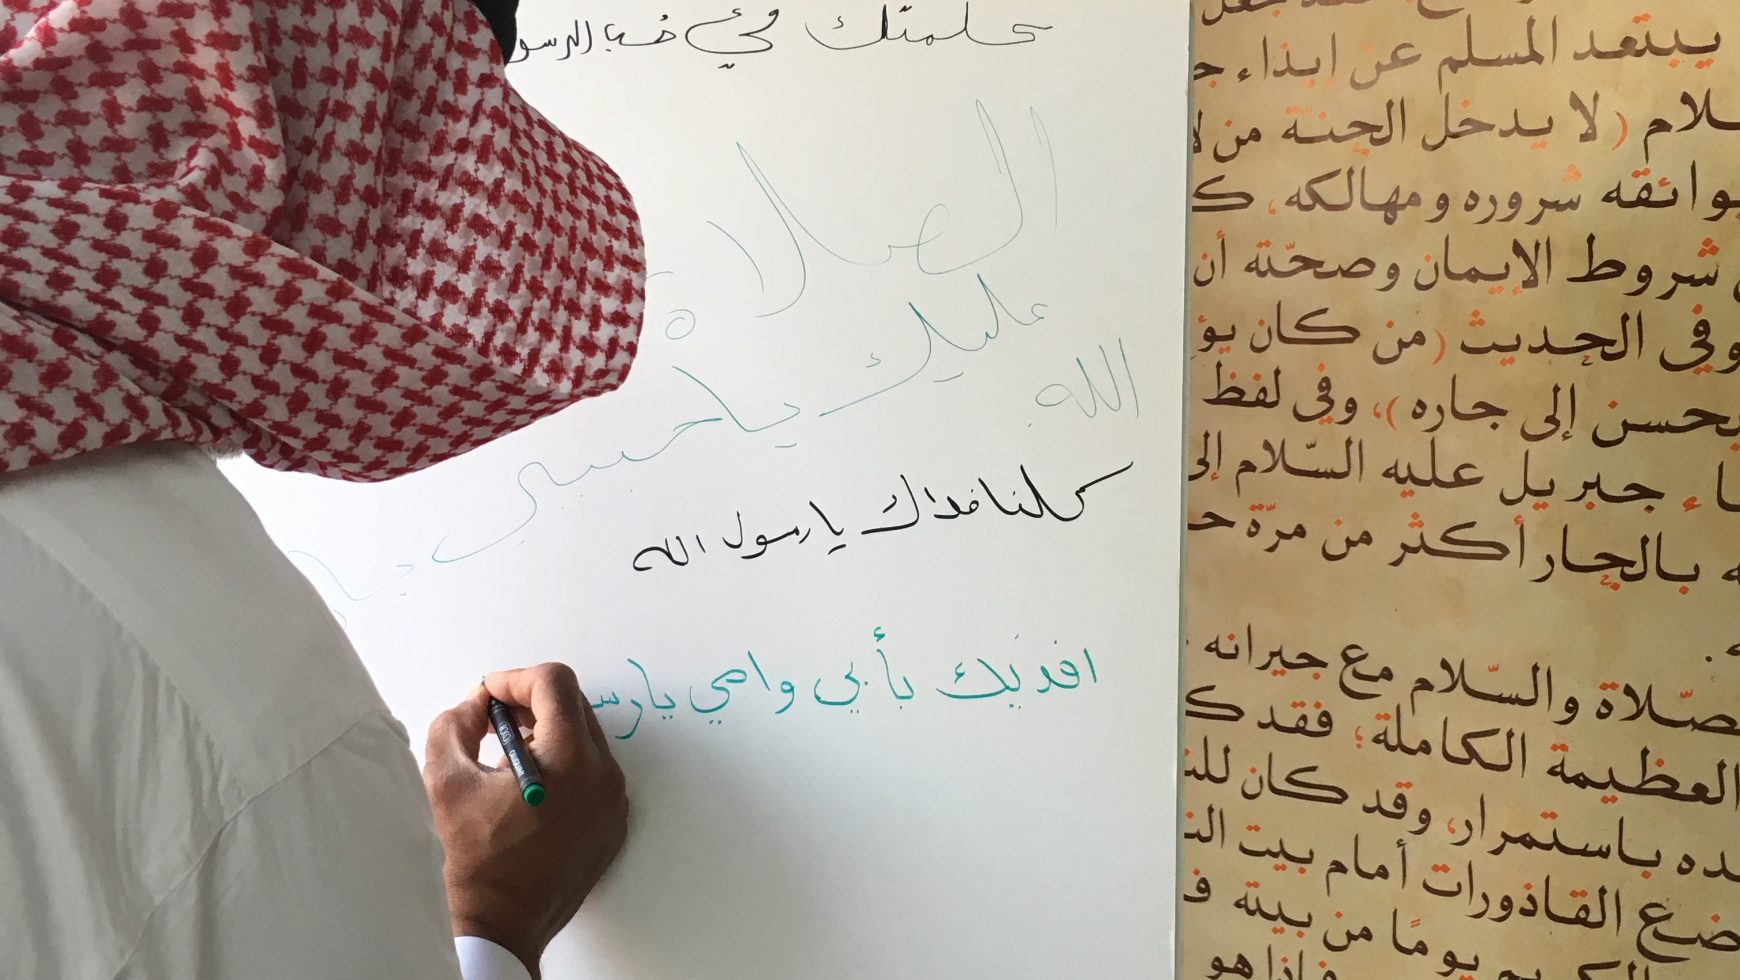 كلمتك في حب الرسو
الصلاة
عليك يا حبيبي يا
الله
كلنا فداك يا رسول الله
افديك بأبي وامي يارس
يبتعد المسلم عن إيذاء جـ
ـلام (لا يدخل الجنّة من لا
ـوائقه شروره ومهالكه، كـ
شروط الإيمان وصحّته أن
وفي الحديث (من كان يؤ
ـحسن إلى جاره)، وفي لفظ
ـاء جبريل عليه السّلام إلى
ـه بالجار أكثر من مرّة حـ
ـه.
ـصّلاة والسّلام مع جيرانه
العظيمة الكاملة؛ فقد كـ
ـده باستمرار، وقد كان للنـ
ـضع القاذورات أمام بيت النـ
الكريم يومًا من بيته فـ
فإذا هو